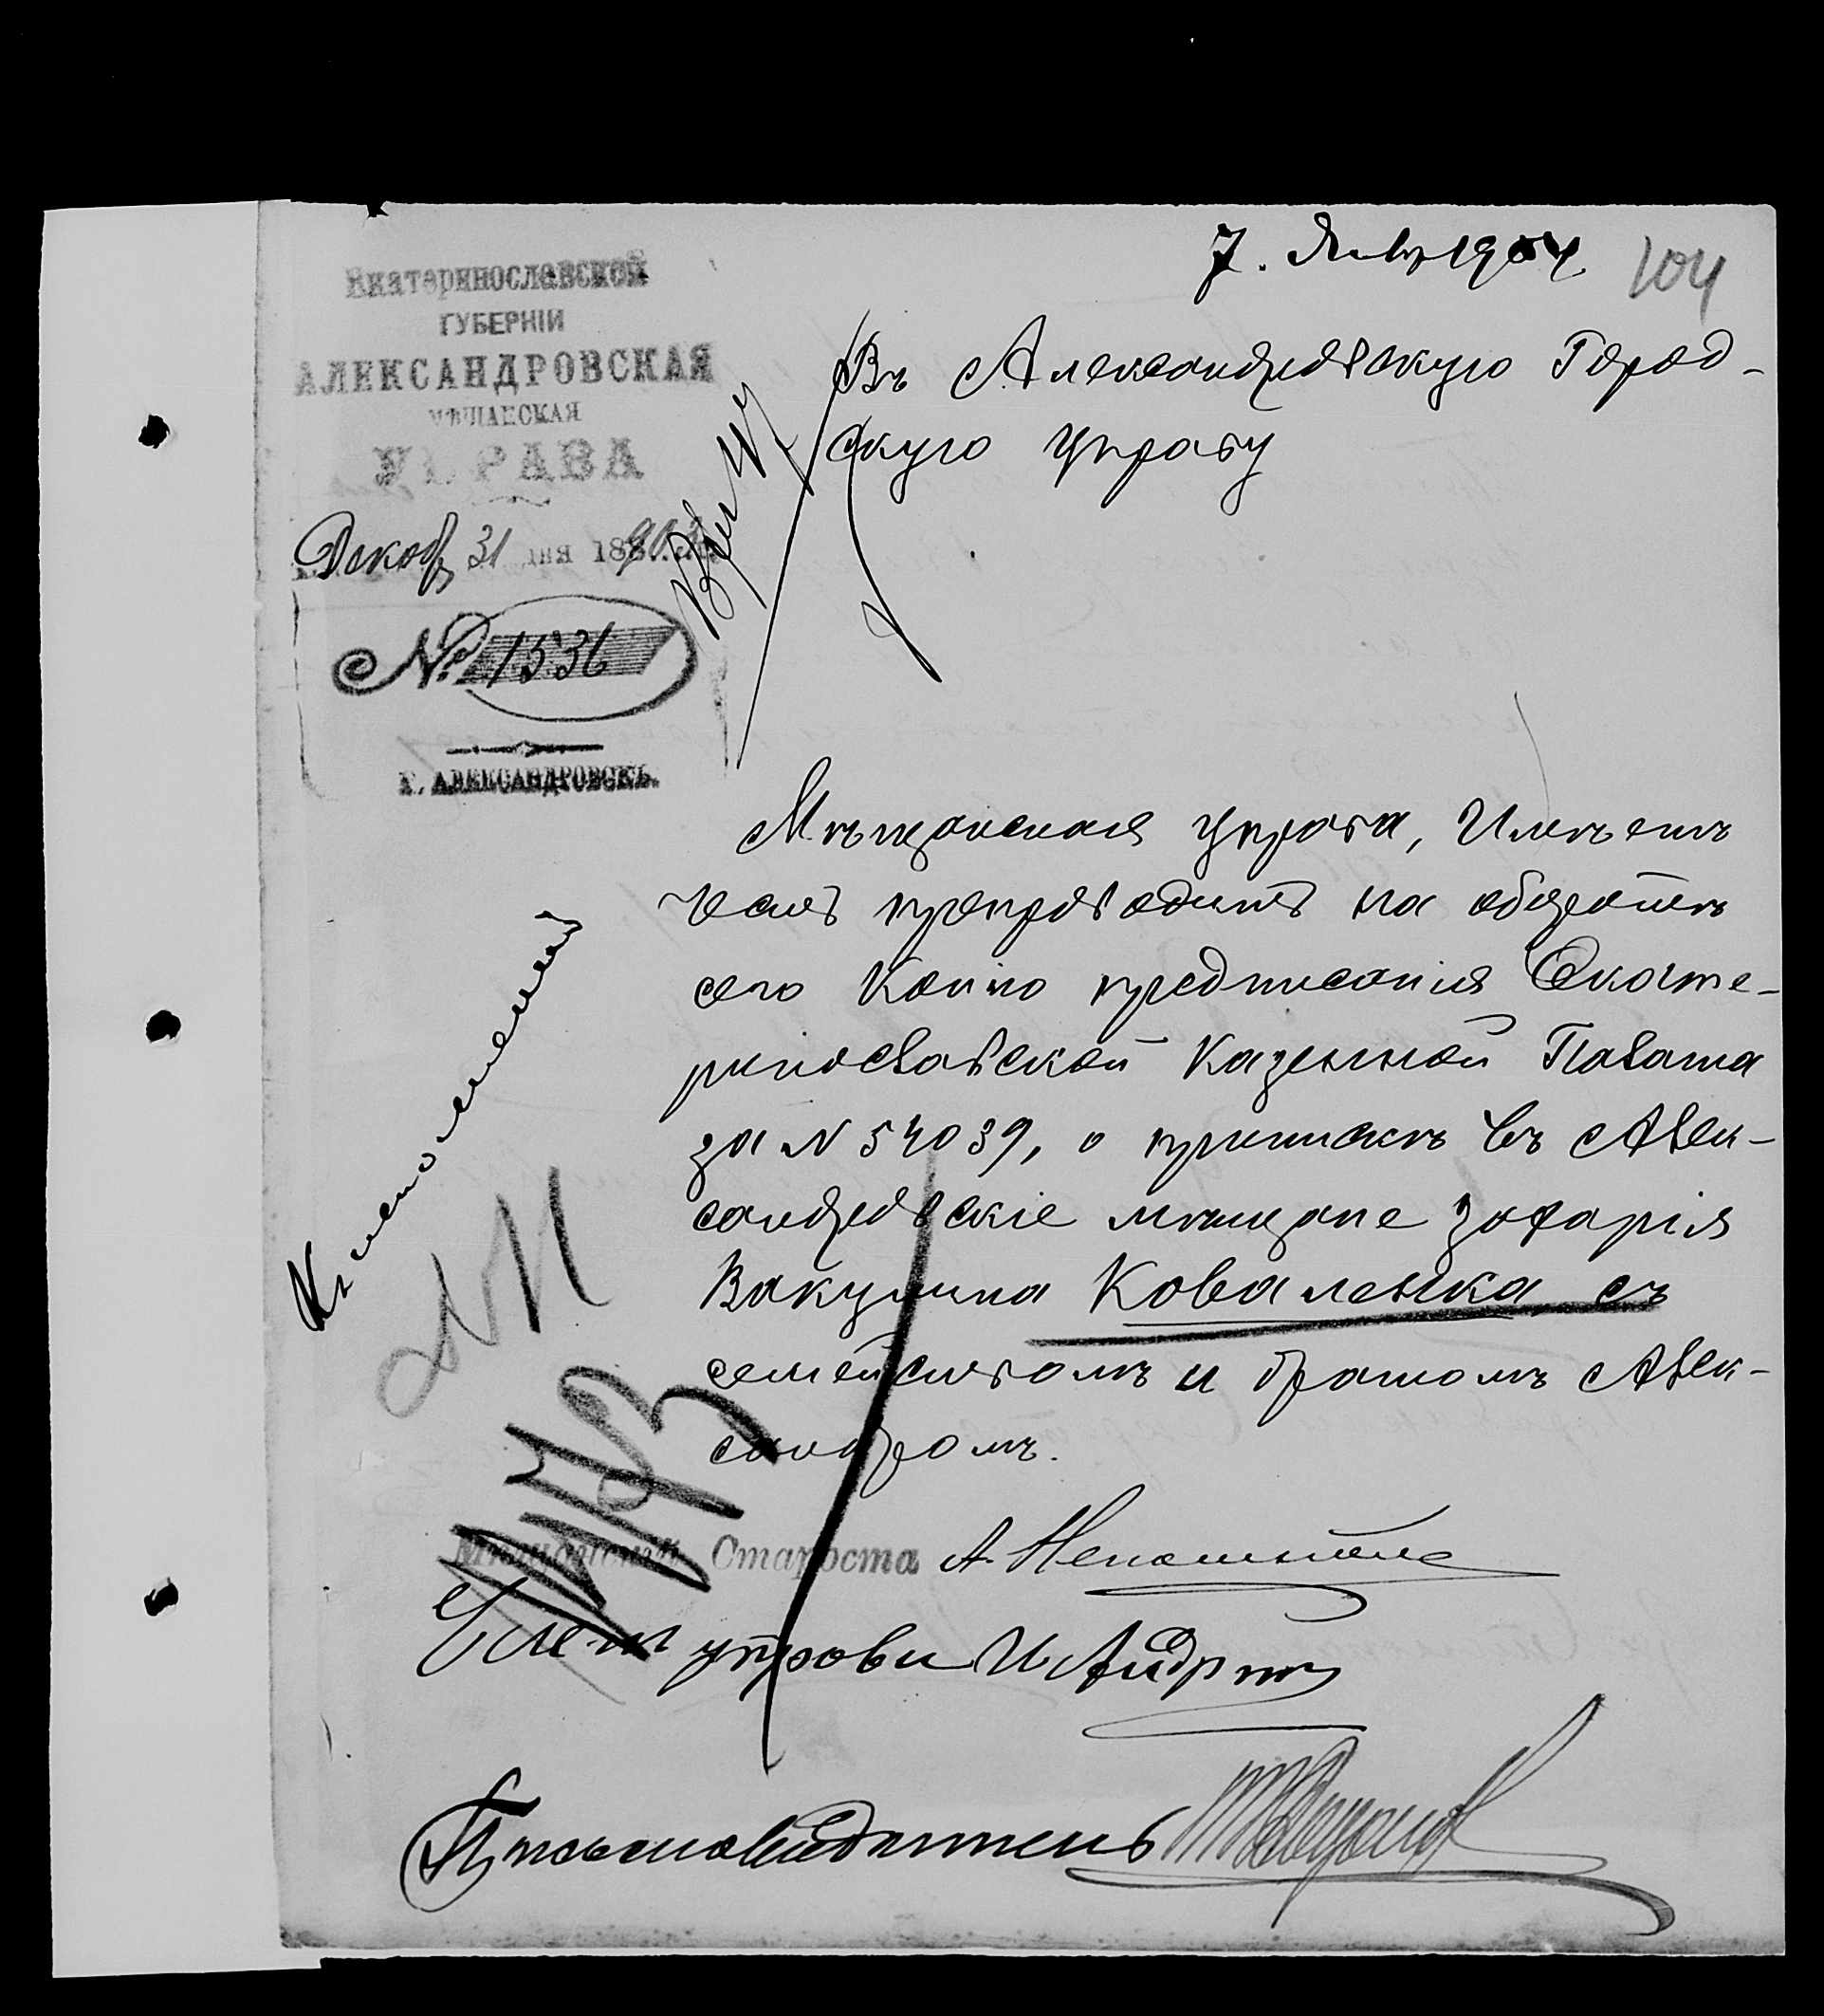 7. Янв 1904
104
Екатеринославской
ГУБЕРНІИ
АЛЕКСАНДРОВСКАЯ
МѢЩАНСКАЯ
УПРАВА
Декаб 31 дня 1903
№ 1536
Г. АЛЕКСАНДРОВСКЪ.
Въ Александровскую Город-
скую Управу
Мѣщанская управа, Имѣетъ
честь препроводить на оборотѣ
сего Копію предписанія Екате-
ринославской Казенной Палата
за N 54039, о припискѣ въ Алек-
сандровскіе мѣщане Захарія
Вакулина Коваленка съ
семействомъ и братомъ Алек-
сандромъ.
Къ исполненію
Мѣщанскій Староста А.
Член управы И Андр
Письмоводитель